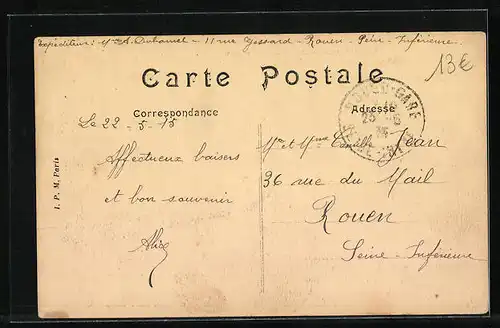 Expéditeur: Mme A. Duhamel - 11 rue Jossard - Rouen - Seine - Inférieure
13€
Carte Postale
Correspondance
Adresse
Le 22 - 5 - 15
Affectueux baisers
et bon souvenir
Alice
Mr et Mme Camille Jean
36 rue du Mail
Rouen
Seine - Inférieure
GARE
25 - 5
I. P. M. Paris